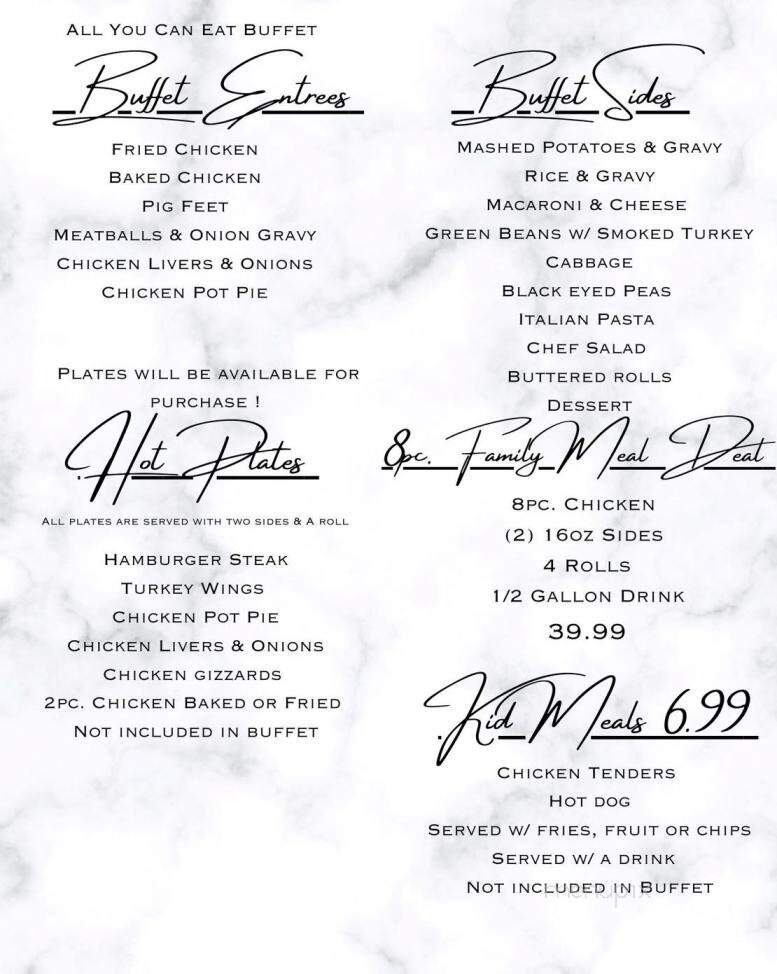 All You Can Eat Buffet
Buffet Entrees
Fried Chicken
Baked Chicken
Pig Feet
Meatballs & Onion Gravy
Chicken Livers & Onions
Chicken Pot Pie
Plates will be available for
purchase !
Hot Plates
All plates are served with two sides & a roll
Hamburger Steak
Turkey Wings
Chicken Pot Pie
Chicken Livers & Onions
Chicken gizzards
2pc. Chicken Baked or Fried
Not included in buffet
Buffet Sides
Mashed Potatoes & Gravy
Rice & Gravy
Macaroni & Cheese
Green Beans w/ Smoked Turkey
Cabbage
Black eyed Peas
Italian Pasta
Chef Salad
Buttered rolls
Dessert
8pc. Family Meal Deal
8pc. Chicken
(2) 16oz Sides
4 Rolls
1/2 Gallon Drink
39.99
Kid Meals 6.99
Chicken Tenders
Hot dog
Served w/ fries, fruit or chips
Served w/ a drink
Not included in Buffet
menupix